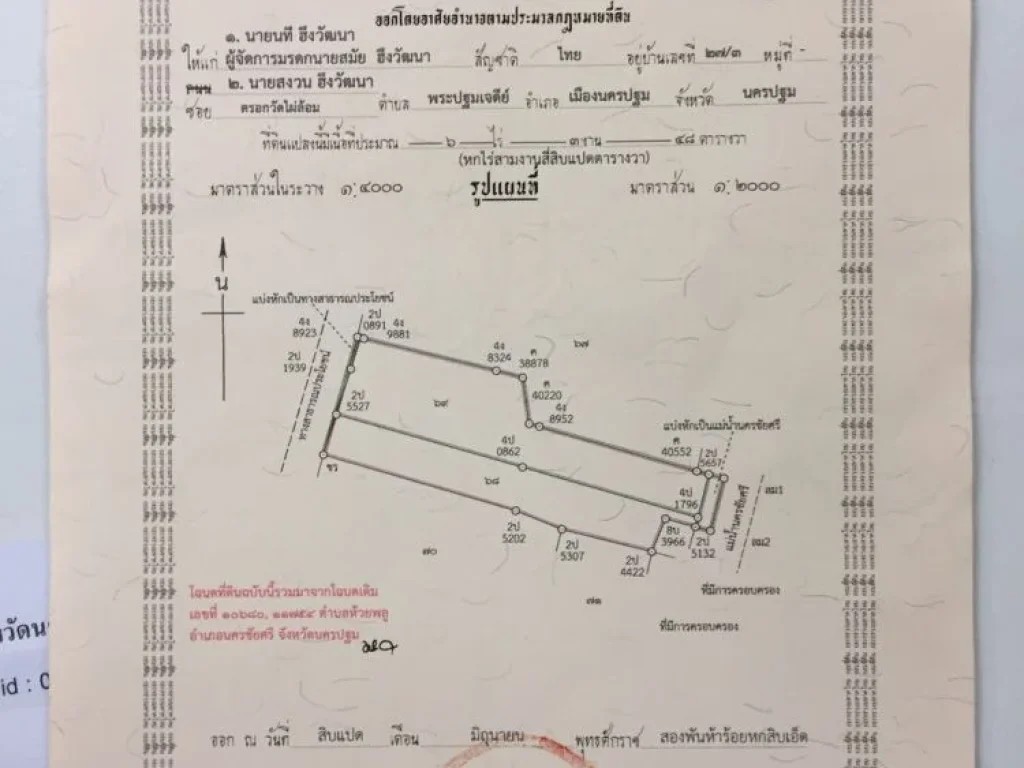 ออกโดยอาศัยอำนาจตามประมวลกฎหมายที่ดิน
๑. นายนที ฮึงวัฒนา
ให้แก่ ผู้จัดการมรดกนายสมัย ฮึงวัฒนา สัญชาติ ไทย อยู่บ้านเลขที่ ๒๗/๓ หมู่ที่ -
ถนน ๒. นายสงวน ฮึงวัฒนา
ซอย ตรอกวัดไผ่ล้อม ตำบล พระปฐมเจดีย์ อำเภอ เมืองนครปฐม จังหวัด นครปฐม
ที่ดินแปลงนี้มีเนื้อที่ประมาณ ๖ ไร่ ๓ งาน ๔๘ ตารางวา
(หกไร่สามงานสี่สิบแปดตารางวา)
มาตราส่วนในระวาง ๑:๔๐๐๐ รูปแผนที่ มาตราส่วน ๑:๒๐๐๐
น
แบ่งหักเป็นทางสาธารณประโยชน์
4ง 8923
2ป 0891
4ง 9881
2ป 1939
ทางสาธารณประโยชน์
4ง 8324
ค 38878
๖๗
2ป 5527
๖๙
ค 40220
4ง 8952
แบ่งหักเป็นแม่น้ำนครชัยศรี
ค 40552
2ป 5657
4ป 0862
ชร
๖๘
4ป 1796
แม่น้ำนครชัยศรี
ลม1
ลม2
2ป 5202
2ป 5307
8บ 3966
2ป 5132
2ป 4422
๗๐
๗๑
ที่มีการครอบครอง
ที่มีการครอบครอง
โฉนดที่ดินฉบับนี้รวมมาจากโฉนดเดิม
เลขที่ ๑๐๖๘๐, ๑๑๗๕๔ ตำบลห้วยพลู
อำเภอนครชัยศรี จังหวัดนครปฐม
id : 0
ออก ณ วันที่ สิบแปด เดือน มิถุนายน พุทธศักราช สองพันห้าร้อยหกสิบเอ็ด